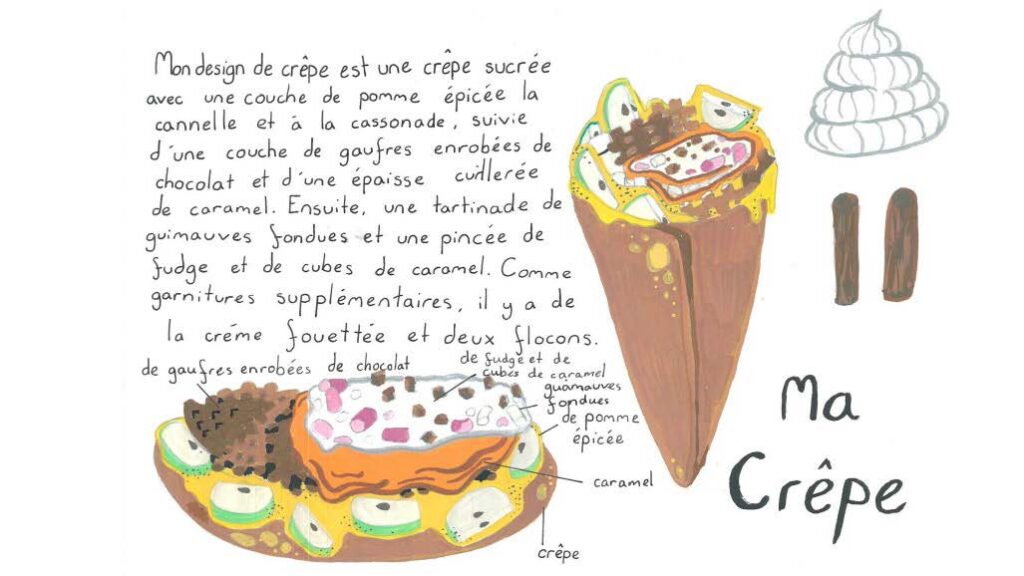 Mon design de crêpe est une crêpe sucrée
avec une couche de pomme épicée la
cannelle et à la cassonade, suivie
d'une couche de gaufres enrobées de
chocolat et d'une épaisse cuillerée
de caramel. Ensuite, une tartinade de
guimauves fondues et une pincée de
fudge et de cubes de caramel. Comme
garnitures supplémentaires, il y a de
la créme fouettée et deux flocons.
de gaufres enrobées de chocolat
de fudge et de
cubes de caramel
guamauves
fondues
de pomme
épicée
caramel
crêpe
Ma
Crêpe